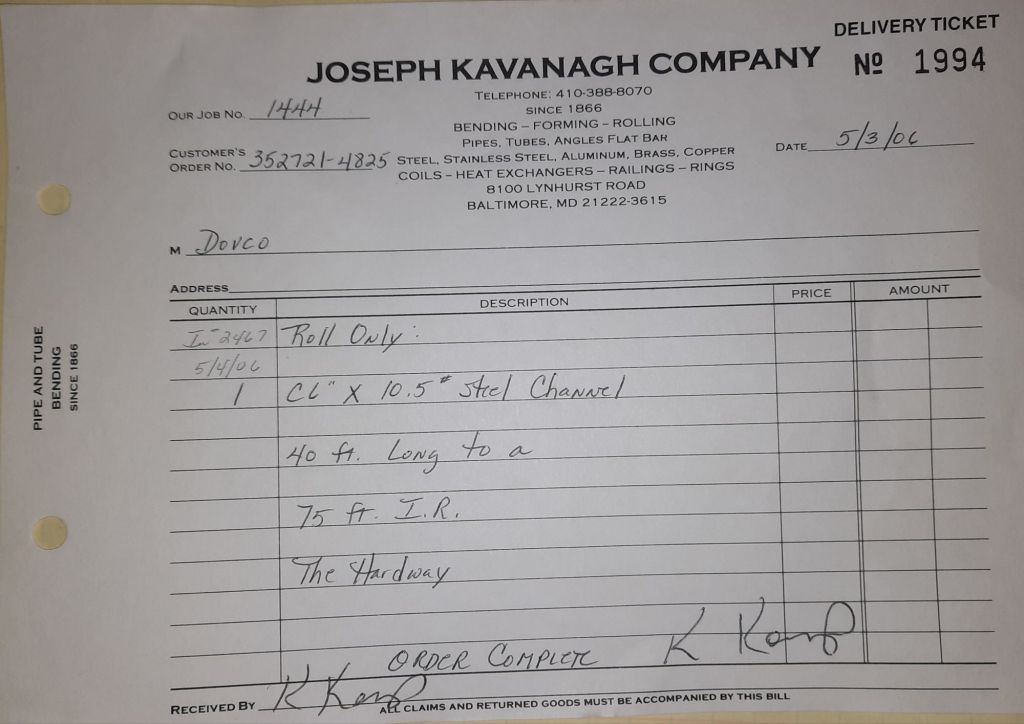 DELIVERY TICKET
JOSEPH KAVANAGH COMPANY
Nº 1994
TELEPHONE: 410-388-8070
SINCE 1866
BENDING – FORMING – ROLLING
PIPES, TUBES, ANGLES FLAT BAR
STEEL, STAINLESS STEEL, ALUMINUM, BRASS, COPPER
COILS – HEAT EXCHANGERS – RAILINGS – RINGS
8100 LYNHURST ROAD
BALTIMORE, MD 21222-3615
OUR JOB NO. 1444
CUSTOMER'S
ORDER NO. 352721-4825
DATE 5/3/06
M Dovco
ADDRESS
QUANTITY DESCRIPTION PRICE AMOUNT
In- 2467 Roll Only:
5/4/06
1 C6" X 10.5# Steel Channel
40 ft. Long to a
75 ft. I.R.
The Hardway
ORDER COMPLETE K
RECEIVED BY K
ALL CLAIMS AND RETURNED GOODS MUST BE ACCOMPANIED BY THIS BILL
PIPE AND TUBE
BENDING
SINCE 1866